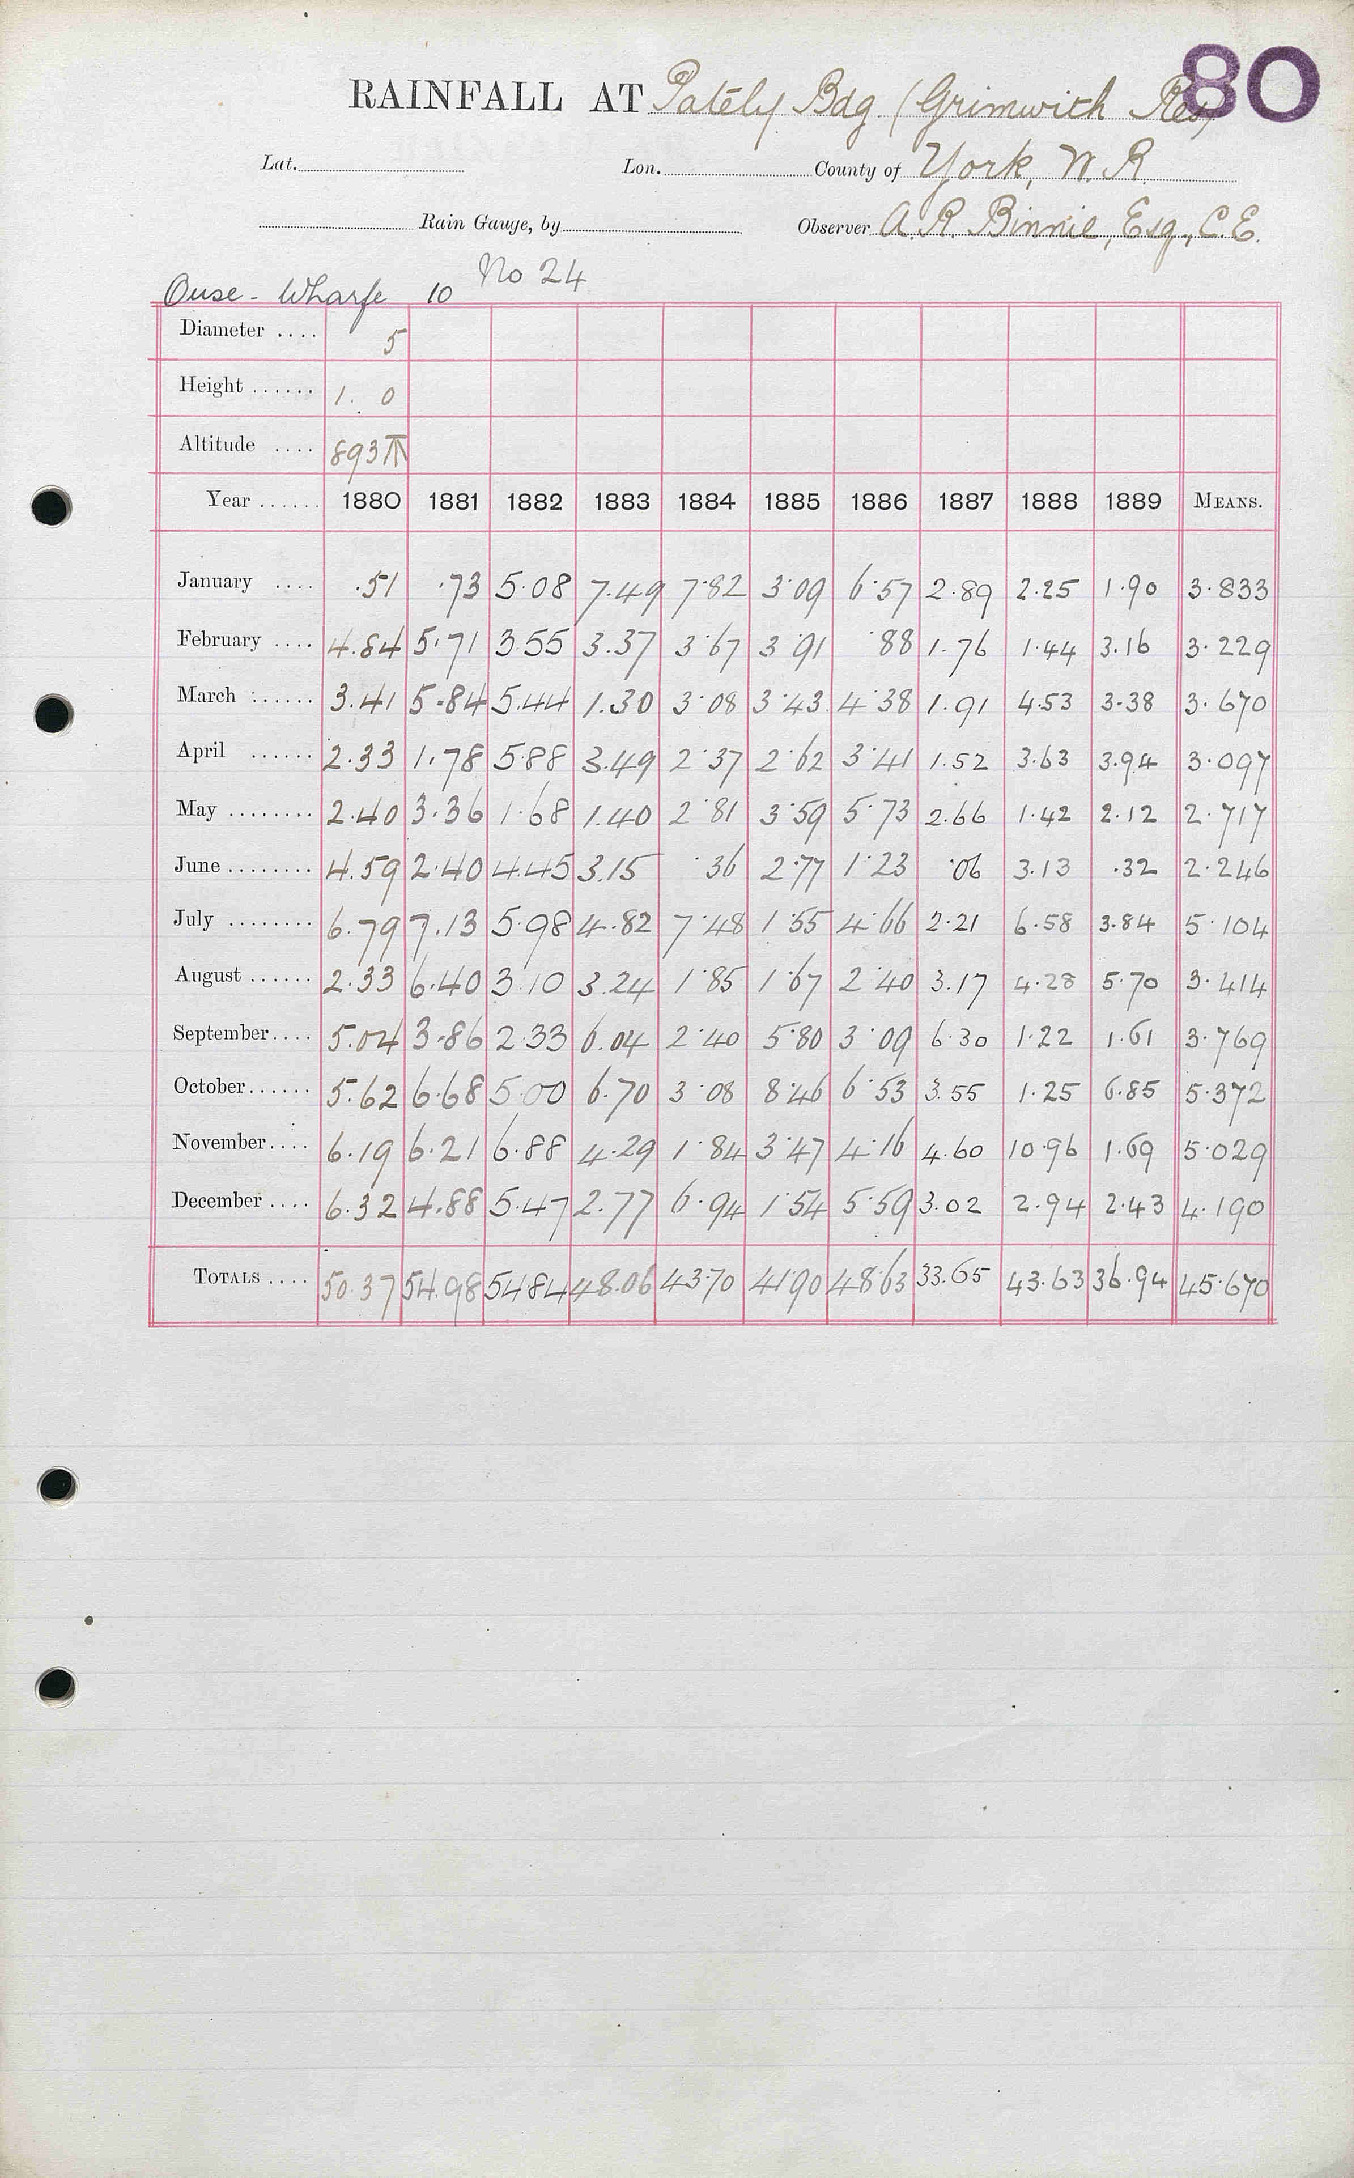 80
RAINFALL AT Pately Bdg (Grimwith Res)
Lat. Lon. County of York, W. R.
Rain Gauge, by Observer A. R. Binnie, Esq., C.E.
No 24
Ouse - Wharfe 10
Diameter .... 5
Height ...... 1. 0
Altitude .... 893
Year ...... 1880 1881 1882 1883 1884 1885 1886 1887 1888 1889 MEANS.
January .... .51 .73 5.08 7.49 7.82 3.09 6.57 2.89 2.25 1.90 3.833
February .... 4.84 5.71 3.55 3.37 3.67 3.91 .88 1.76 1.44 3.16 3.229
March ...... 3.41 5.84 5.44 1.30 3.08 3.43 4.38 1.91 4.53 3.38 3.670
April ...... 2.33 1.78 5.88 3.49 2.37 2.62 3.41 1.52 3.63 3.94 3.097
May ........ 2.40 3.36 1.68 1.40 2.81 3.59 5.73 2.66 1.42 2.12 2.717
June ........ 4.59 2.40 4.45 3.15 .36 2.77 1.23 .06 3.13 .32 2.246
July ........ 6.79 7.13 5.98 4.82 7.48 1.55 4.66 2.21 6.58 3.84 5.104
August ...... 2.33 6.40 3.10 3.24 1.85 1.67 2.40 3.17 4.28 5.70 3.414
September.... 5.04 3.86 2.33 6.04 2.40 5.80 3.09 6.30 1.22 1.61 3.769
October...... 5.62 6.68 5.00 6.70 3.08 8.46 6.53 3.55 1.25 6.85 5.372
November.... 6.19 6.21 6.88 4.29 1.84 3.47 4.16 4.60 10.96 1.69 5.029
December .... 6.32 4.88 5.47 2.77 6.94 1.54 5.59 3.02 2.94 2.43 4.190
TOTALS .... 50.37 54.98 54.84 48.06 43.70 41.90 48.63 33.65 43.63 36.94 45.670